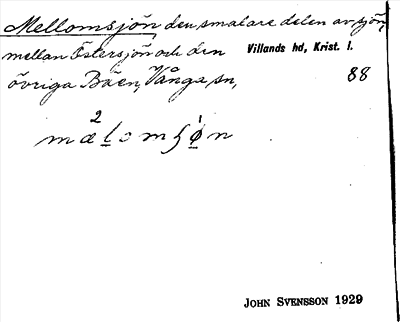 Mellomsjön den smalare delen av sjön,
mellan Östersjön och den Villands hd, Krist. l.
övriga Båen, Vånga sn, 88
mælɔmʃøn
JOHN SVENSSON 1929